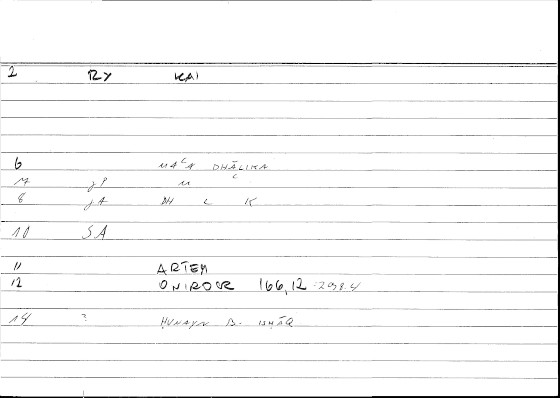 2 RY KAI
6 MAʿA DHĀLIKA
7 JP M ʿ
8 JA DH L K
10 SA
11 ARTEM
12 ONIROCR 166,12
14 ? HUNAYN B. ISHĀQ